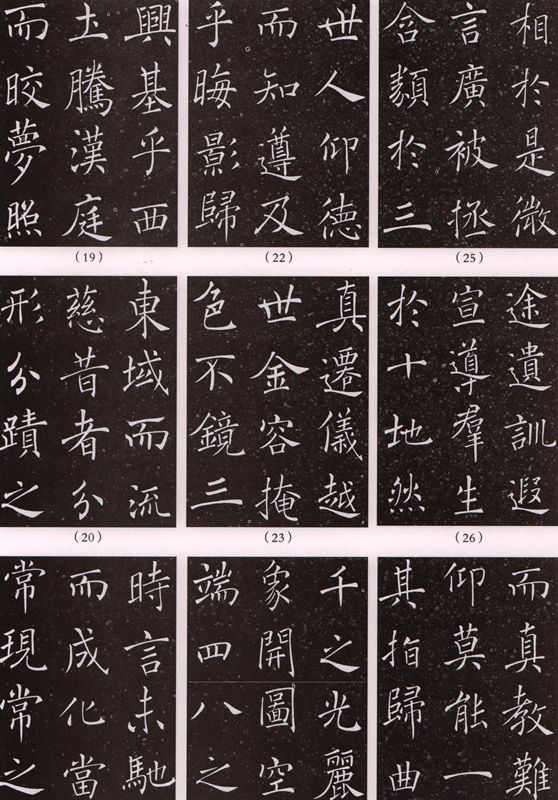 興基乎西
土騰漢庭
而晈夢照
(19)
東域而流
慈昔者分
形分蹟之
(20)
時言未馳
而成化當
常現常之
世人仰德
而知遵及
乎晦影歸
(22)
真遷儀越
世金容掩
色不鏡三
(23)
千之光麗
象開圖空
端四八之
相於是微
言廣被拯
含類於三
(25)
途遺訓遐
宣導羣生
於十地然
(26)
而真教難
仰莫能一
其指歸曲